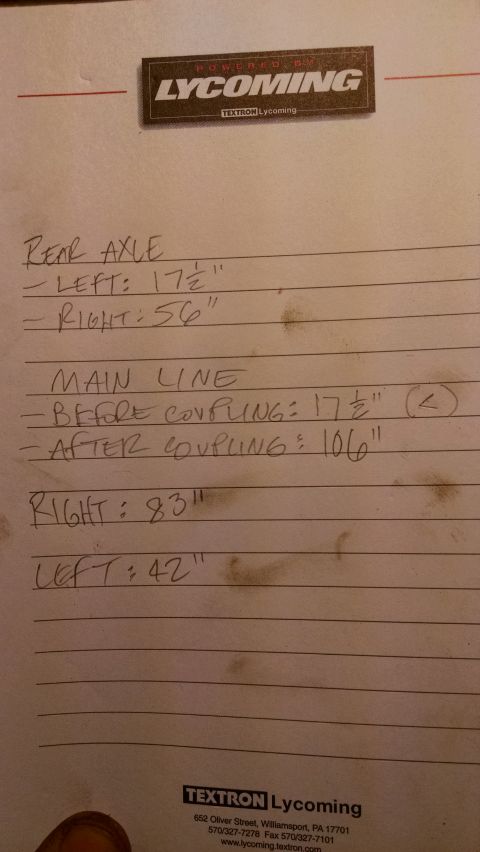 POWERED BY
LYCOMING
TEXTRON Lycoming
REAR AXLE
- LEFT: 17 1/2"
- RIGHT: 56"
MAIN LINE
- BEFORE COUPLING: 17 1/2" (<)
- AFTER COUPLING: 106"
RIGHT: 83"
LEFT: 42"
TEXTRON Lycoming
652 Oliver Street, Williamsport, PA 17701
570/327-7278 Fax 570/327-7101
www.lycoming.textron.com